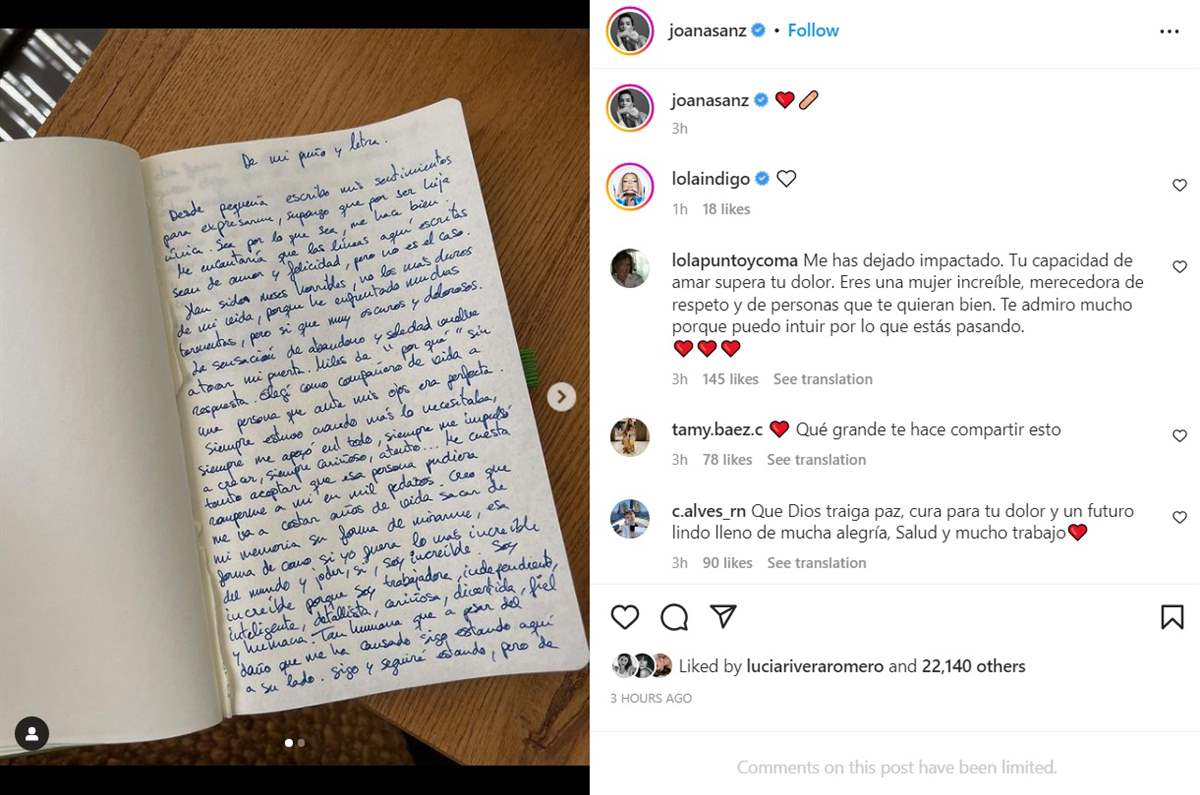 De mi puño y letra.
Desde pequeña escribo mis sentimientos
para expresarme, supongo que por ser hija
única. Sea por lo que sea, me hace bien.
Me encantaría que las líneas aquí escritas
sean de amor y felicidad, pero no es el caso.
Han sidos meses horribles, no los mas duros
de mi vida, porque he enfrentado muchas
tormentas, pero si que muy oscuros y dolorosos.
La sensación de abandono y soledad vuelve
a tocar mi puerta. Miles de "por qué" sin
respuesta. Elegí como compañero de vida a
una persona que ante mis ojos era perfecta.
Siempre estuvo cuando más lo necesitaba,
siempre me apoyó en todo, siempre me impulsó
a crear, siempre cariñoso, atento... Me cuesta
tanto aceptar que esa persona pudiera
romperme a mi en mil pedazos. Creo que
me va a costar años de vida sacar de
mi memoria su forma de mirarme, esa
forma de como si yo fuera lo más increíble
del mundo y joder, si, soy increíble. Soy
increíble porque soy trabajadora, independiente,
inteligente, detallista, cariñosa, divertida, fiel
y humana. Tan humana que a pesar del
daño que me ha causado sigo estando aquí
a su lado. Sigo y seguiré estando, pero de
joanasanz • Follow
joanasanz ❤️🩹
3h
lolaindigo 🤍
1h 18 likes
lolapuntoycoma Me has dejado impactado. Tu capacidad de
amar supera tu dolor. Eres una mujer increíble, merecedora de
respeto y de personas que te quieran bien. Te admiro mucho
porque puedo intuir por lo que estás pasando.
❤️❤️❤️
3h 145 likes See translation
tamy.baez.c ❤️ Qué grande te hace compartir esto
3h 78 likes See translation
c.alves_rn Que Dios traiga paz, cura para tu dolor y un futuro
lindo lleno de mucha alegría, Salud y mucho trabajo❤️
3h 90 likes See translation
Liked by luciariveraromero and 22,140 others
3 HOURS AGO
Comments on this post have been limited.